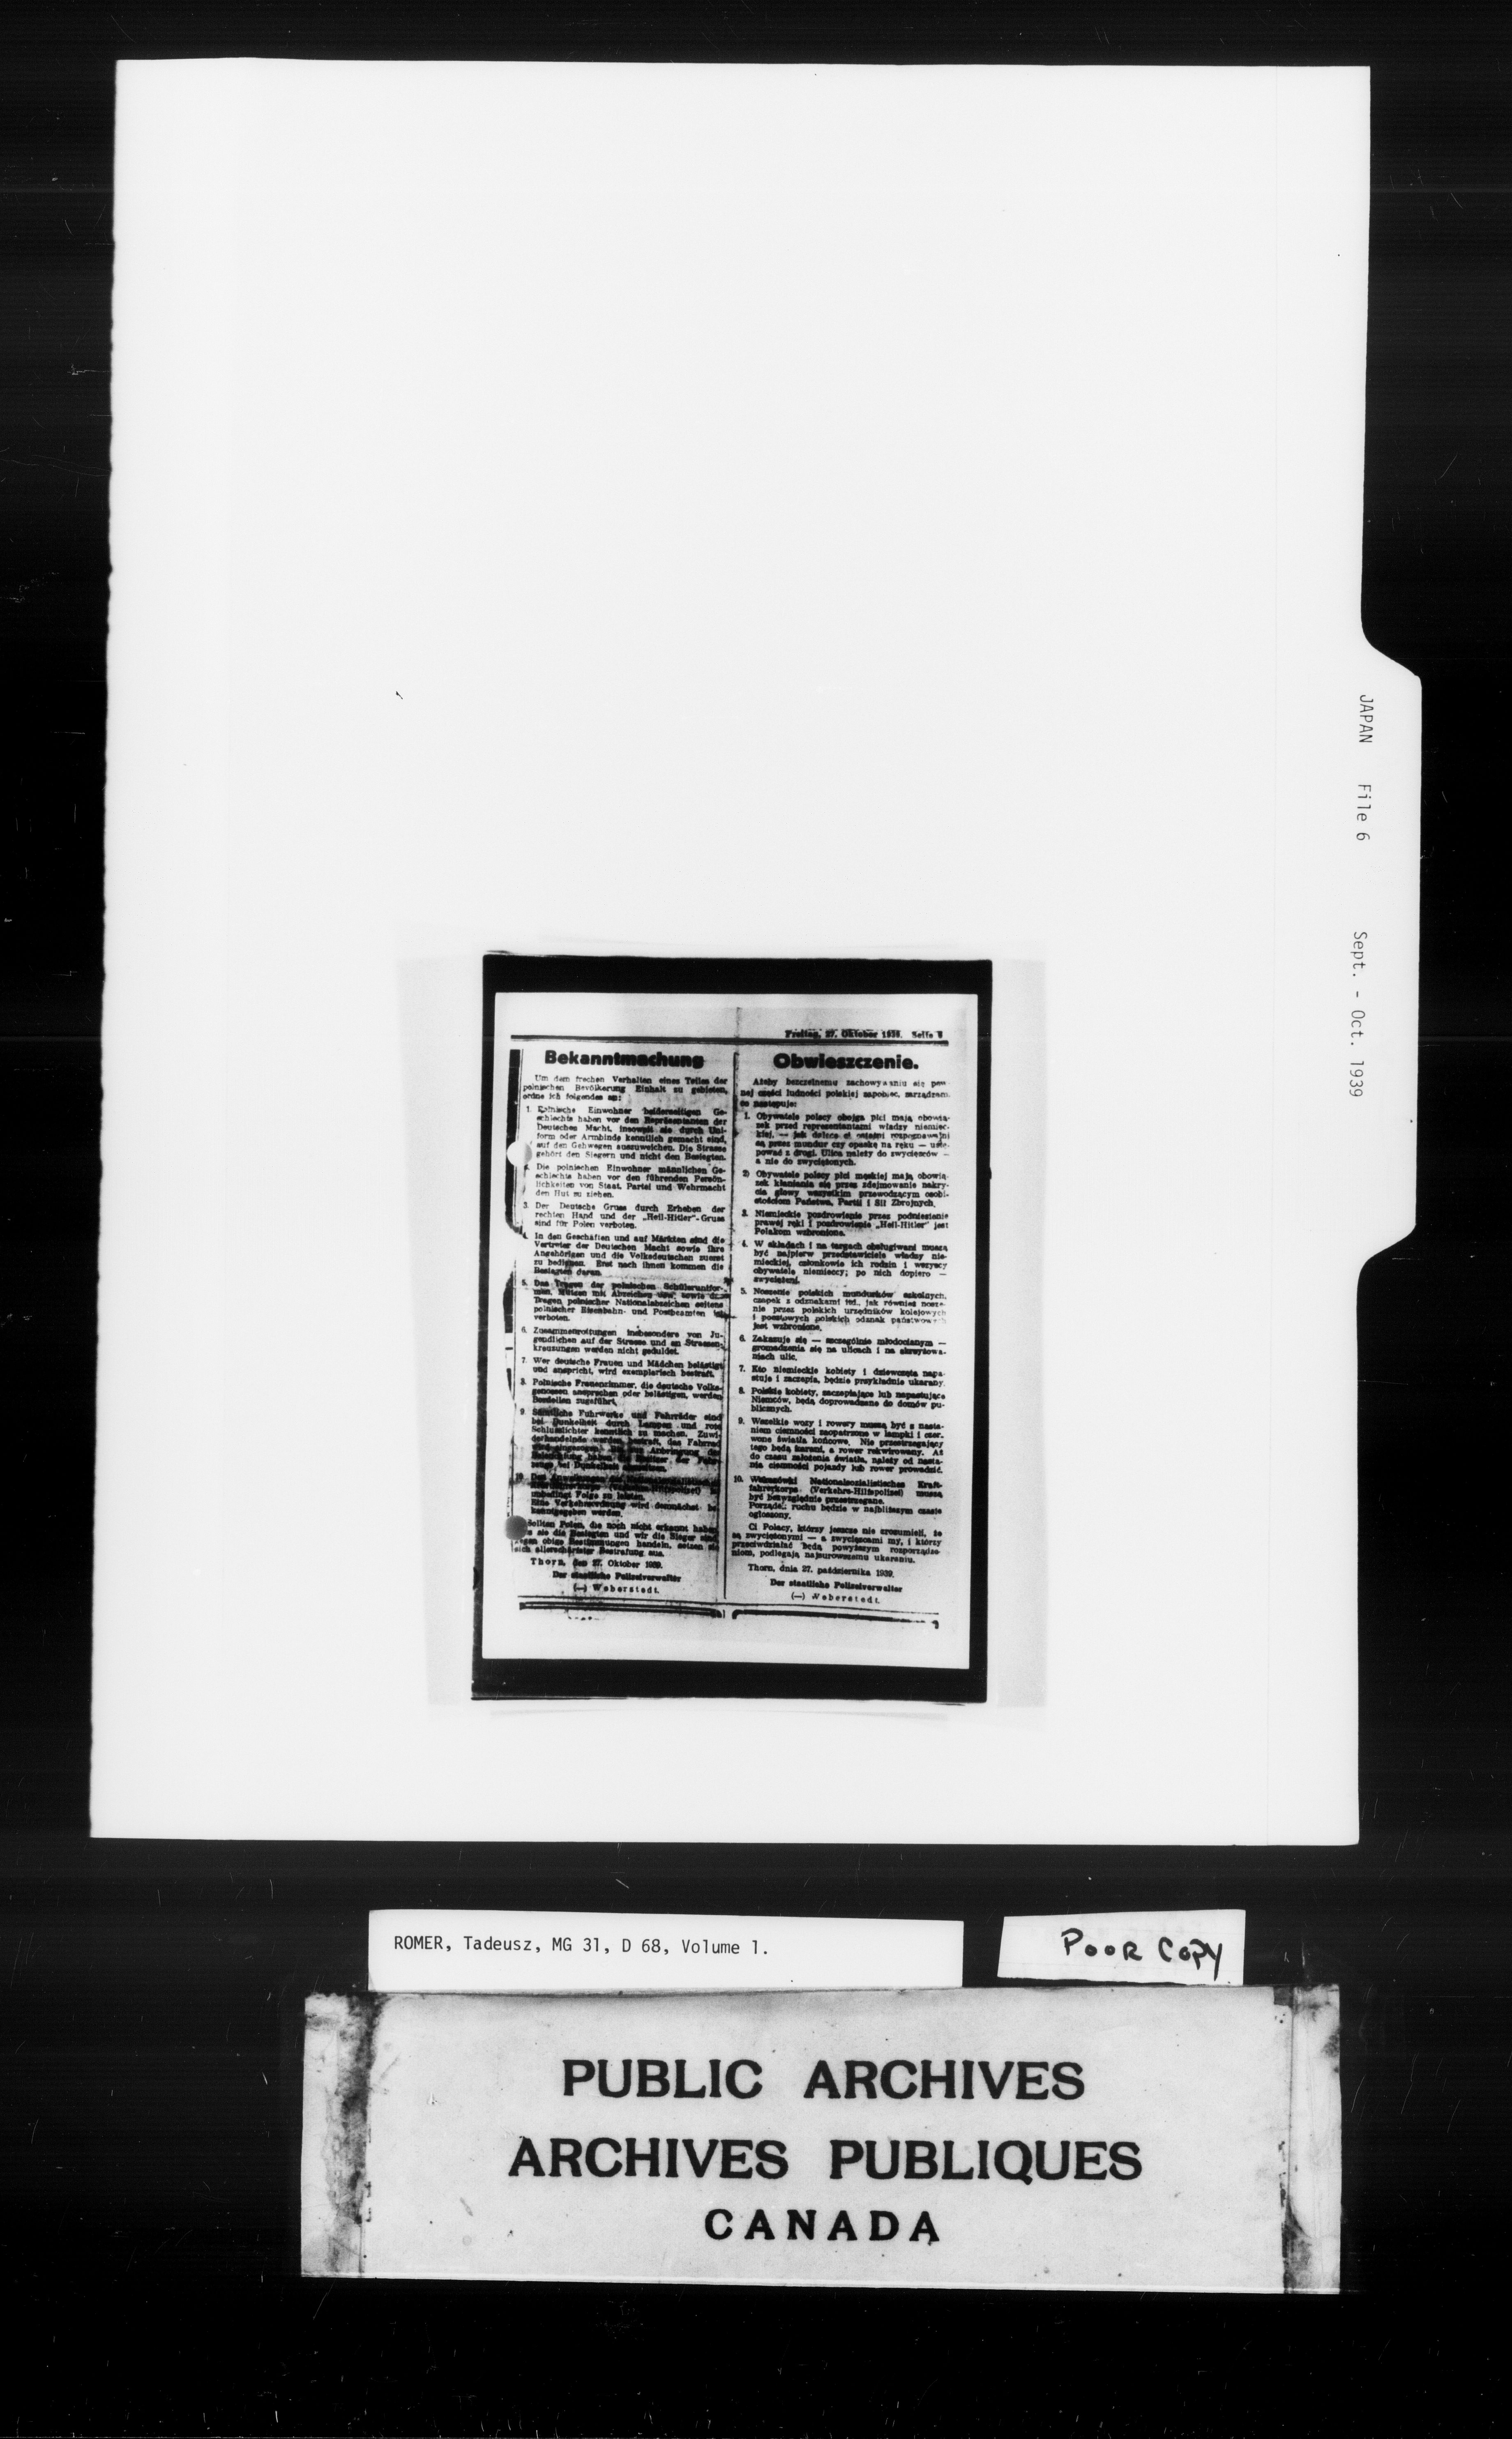 JAPAN File 6 Sept. - Oct. 1939
Freitag, 27. Oktober 1939. Seite
Bekanntmachung
Um dem frechen Verhalten eines Teiles der
polnischen Bevölkerung Einhalt zu gebieten,
ordne ich folgendes an:
1. Polnische Einwohner beiderseitigen Ge-
schlechts haben vor den Repräsentanten der
Deutschen Macht, insoweit sie durch Uni-
form oder Armbinde kenntlich gemacht sind,
auf den Gehwegen auszuweichen. Die Strasse
gehört den Siegern und nicht den Besiegten.
2. Die polnischen Einwohner männlichen Ge-
schlechts haben vor den führenden Persön-
lichkeiten von Staat, Partei und Wehrmacht
den Hut zu ziehen.
3. Der Deutsche Gruss durch Erheben der
rechten Hand und der „Heil-Hitler"-Gruss
sind für Polen verboten.
4. In den Geschäften und auf Märkten sind die
Vertreter der Deutschen Macht sowie ihre
Angehörigen und die Volksdeutschen zuerst
zu bedienen. Erst nach ihnen kommen die
Besiegten daran.
5. Das Tragen der polnischen Schüleruntfor-
men, Mützen mit Abzeichen usw. sowie das
Tragen polnischer Nationalabzeichen seitens
polnischer Eisenbahn- und Postbeamten ist
verboten.
6. Zusammenrottungen insbesonders von Ju-
gendlichen auf der Strasse und an Strassen-
kreuzungen werden nicht geduldet.
7. Wer deutsche Frauen und Mädchen belästigt
und anspricht, wird exemplarisch bestraft.
8. Polnische Frauenzimmer, die deutsche Volks-
genossen ansprechen oder belästigen, werden
Bordellen zugeführt.
9. Sämtliche Fuhrwerke und Fahrräder sind
bei Dunkelheit durch Lampen und rote
Schlusslichter kenntlich zu machen. Zuwi-
derhandelnde werden bestraft, das Fahrrad
wird eingezogen. Anbringung der
Beleuchtung haben die Besitzer der Fahr-
zeuge bei Dunkelheit
10. Den Anweisungen des Nationalsozialistischen
(Verkehrs-Hilfspolizei) ist
unbedingt Folge zu leisten.
Eine Verkehrsordnung wird demnächst be-
kanntgegeben werden.
Sollten Polen, die noch nicht erkannt haben,
sie die Besiegten und wir die Sieger sind,
gegen obige Bestimmungen handeln, setzen sie
sich allerschärfster Bestrafung aus.
Thorn, den 27. Oktober 1939.
Der staatliche Polizeiverwalter
(—) Weberstedt.
Obwieszczenie.
Ażeby bezczelnemu zachowywaniu się pew-
nej części ludności polskiej zapobiec, zarządzam
co następuje:
1. Obywatele polscy obojga płci mają obowią-
zek przed reprezentantami władzy niemiec-
kiej, — jak dalece ci ostatni rozpoznawalni
są przez mundur czy opaskę na ręku — ustę-
pować z drogi. Ulica należy do zwycięzców —
a nie do zwyciężonych.
2) Obywatele polscy płci męskiej mają obowią-
zek kłaniania się przez zdejmowanie nakry-
cia głowy wszystkim przewodzącym osobi-
stościom Państwa, Partii i Sił Zbrojnych.
3. Niemieckie pozdrowienie przez podniesienie
prawej ręki i pozdrowienie „Heil-Hitler" jest
Polakom wzbronione.
4. W składach i na targach obsługiwani muszą
być najpierw przedstawiciele władzy nie-
mieckiej, członkowie ich rodzin i wszyscy
obywatele niemieccy; po nich dopiero —
zwyciężeni.
5. Noszenie polskich mundurków szkolnych,
czapek z odznakami itd., jak również nosze-
nie przez polskich urzędników kolejowych
i pocztowych polskich odznak państwowych
jest wzbronione.
6. Zakazuje się — szczególnie młodocianym —
gromadzenia się na ulicach i na skrzyżowa-
niach ulic.
7. Kto niemieckie kobiety i dziewczęta napa-
stuje i zaczepia, będzie przykładnie ukarany.
8. Polskie kobiety, zaczepiające lub napastujące
Niemców, będą doprowadzane do domów pu-
blicznych.
9. Wszelkie wozy i rowery muszą być z nasta-
niem ciemności zaopatrzone w lampki i czer-
wone światła końcowe. Nie przestrzegający
tego będą karani, a rower rekwirowany. Aż
do czasu założenia światła, należy od nasta-
nia ciemności pojazdy lub rower prowadzić.
10. Wskazówki Nationalsozialistisches Kraft-
fahrerkorps (Verkehrs-Hilfspolizei) muszą
być bezwzględnie przestrzegane.
Porządek ruchu będzie w najbliższym czasie
ogłoszony.
Ci Polacy, którzy jeszcze nie zrozumieli, że
są zwyciężonymi — a zwycięzcami my, i którzy
przeciwdziałać będą powyższym rozporządze-
niom, podlegają najsurowszemu ukaraniu.
Thorn, dnia 27. października 1939.
Der staatliche Polizeiverwalter
(—) Weberstedt.
ROMER, Tadeusz, MG 31, D 68, Volume 1.
POOR COPY
PUBLIC ARCHIVES
ARCHIVES PUBLIQUES
CANADA